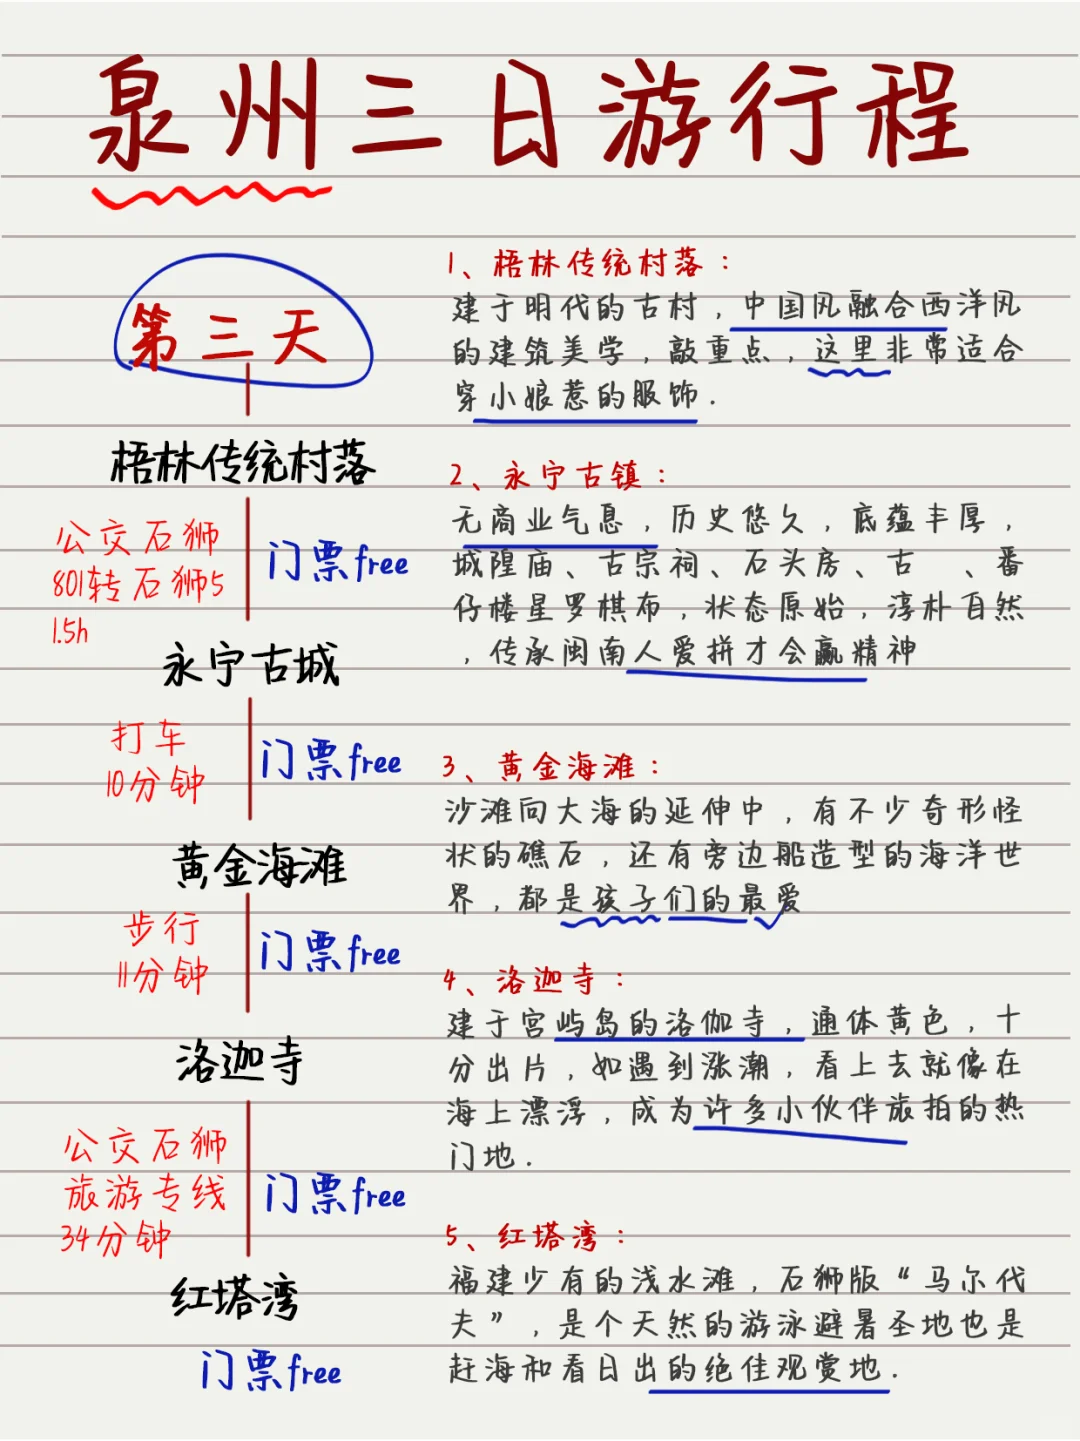 泉州三日游行程
第三天
梧林传统村落
公交石狮
801转石狮5
1.5h
门票free
永宁古城
打车
10分钟
门票free
黄金海滩
步行
11分钟
门票free
洛迦寺
公交石狮
旅游专线
34分钟
门票free
红塔湾
门票free
1、梧林传统村落：
建于明代的古村，中国风融合西洋风
的建筑美学，敲重点，这里非常适合
穿小娘惹的服饰.
2、永宁古镇：
无商业气息，历史悠久，底蕴丰厚，
城隍庙、古宗祠、石头房、古 、番
仔楼星罗棋布，状态原始，淳朴自然
，传承闽南人爱拼才会赢精神
3、黄金海滩：
沙滩向大海的延伸中，有不少奇形怪
状的礁石，还有旁边船造型的海洋世
界，都是孩子们的最爱
4、洛迦寺：
建于宫屿岛的洛伽寺，通体黄色，十
分出片，如遇到涨潮，看上去就像在
海上漂浮，成为许多小伙伴旅拍的热
门地.
5、红塔湾：
福建少有的浅水滩，石狮版“马尔代
夫”，是个天然的游泳避暑圣地也是
赶海和看日出的绝佳观赏地.